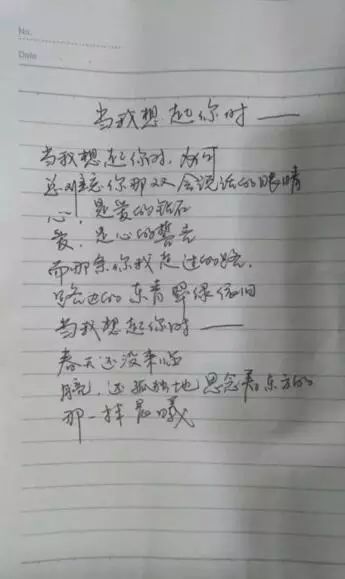 No.
Date
当我想起你时——
当我想起你时，为何
总难忘你那双会说话的眼睛
心，是爱的钻石
爱，是心的誓言
而那条你我走过的路，
路边的冬青野绿依旧
当我想起你时——
春天还没来临
月亮，还孤独地思念着东方的
那一抹晨曦